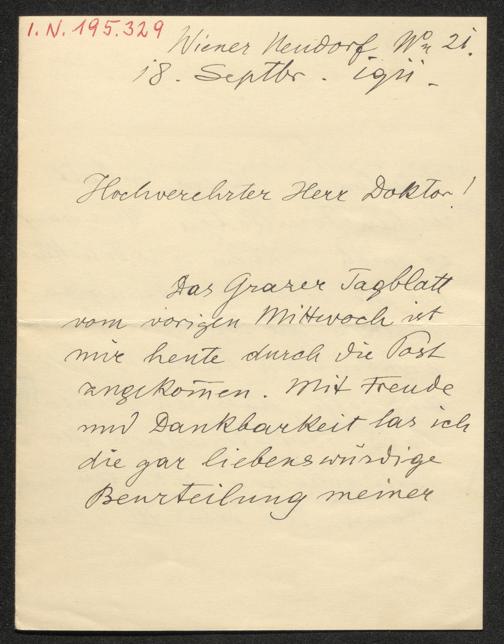 I. N. 195.329
Wiener Neudorf Nr 21.
18. Septbr. 1911.
Hochverehrter Herr Doktor!
Das Grazer Tagblatt
vom vorigen Mittwoch ist
mir heute durch die Post
angekom̄en. Mit Freude
und Dankbarkeit las ich
die gar liebenswürdige
Beurteilung meiner